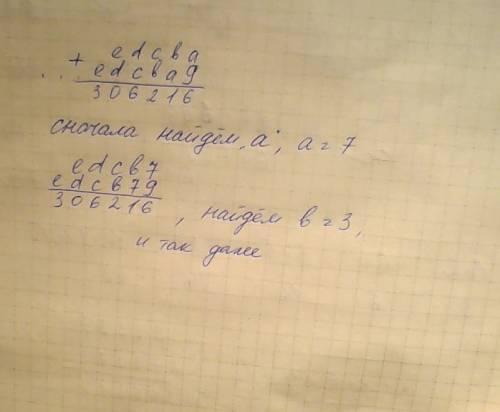 + e d c b a
e d c b a 9
3 0 6 2 1 6
сначала найдём „a", a = 7
e d c b 7
e d c b 7 9
3 0 6 2 1 6 , найдём b = 3,
и так даже